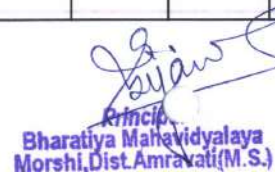 Principal
Bharatiya Mahavidyalaya
Morshi,Dist.Amravati(M.S.)